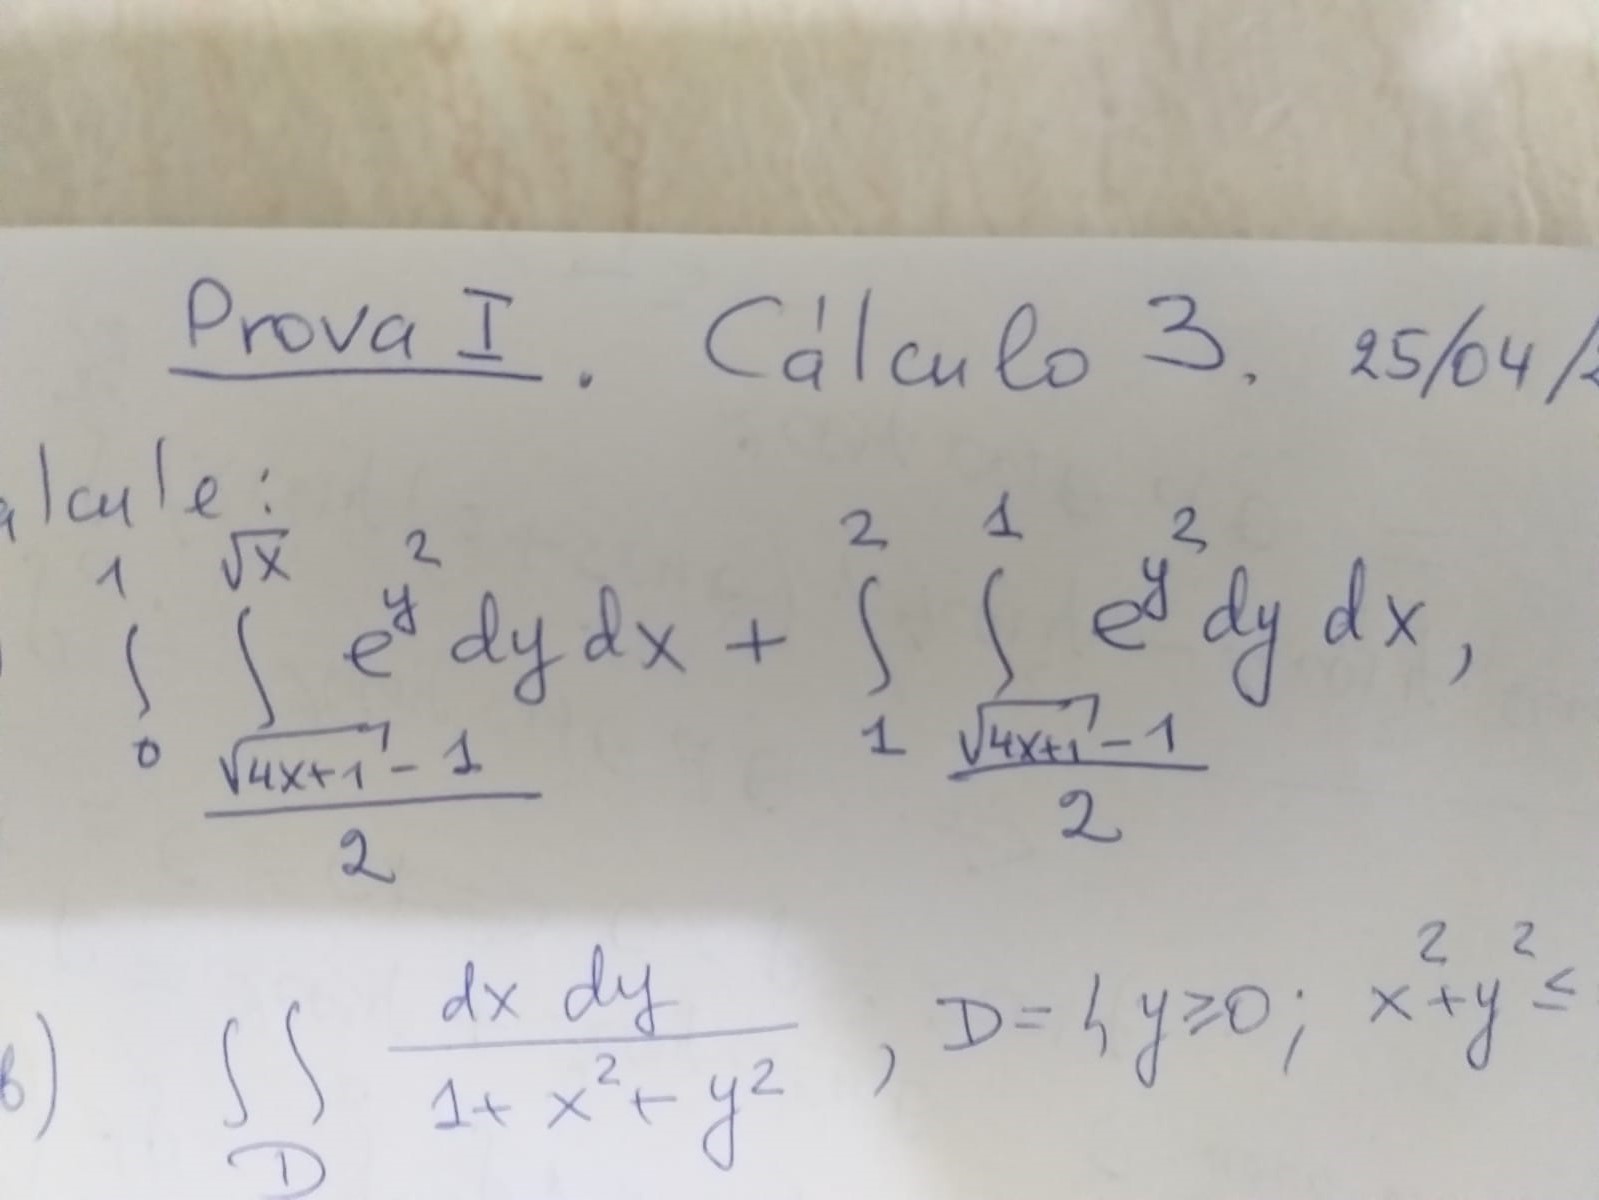 Prova I. Cálculo 3. 25/04/
alcule:
∫₀¹ ∫_{(√(4x+1) - 1)/2}^{√x} e^{y²} dy dx + ∫₁² ∫_{(√(4x+1) - 1)/2}^{1} e^{y²} dy dx,
b) ∫∫_D dx dy / (1 + x² + y²), D = { y ≥ 0; x² + y² ≤